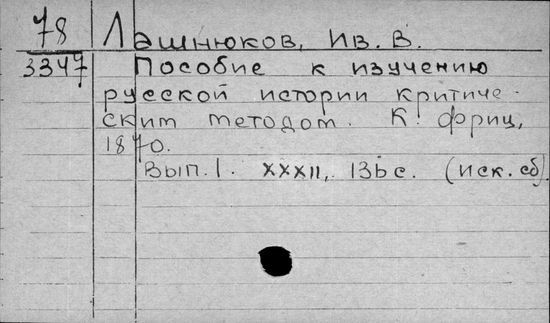 78 Лашнюков, Ив. В.
3347 Пособие к изучению
русской истории критиче-
ским методом. К. Фриц,
1870.
Вып. I. XXXII, 136 с. (иск. сб).